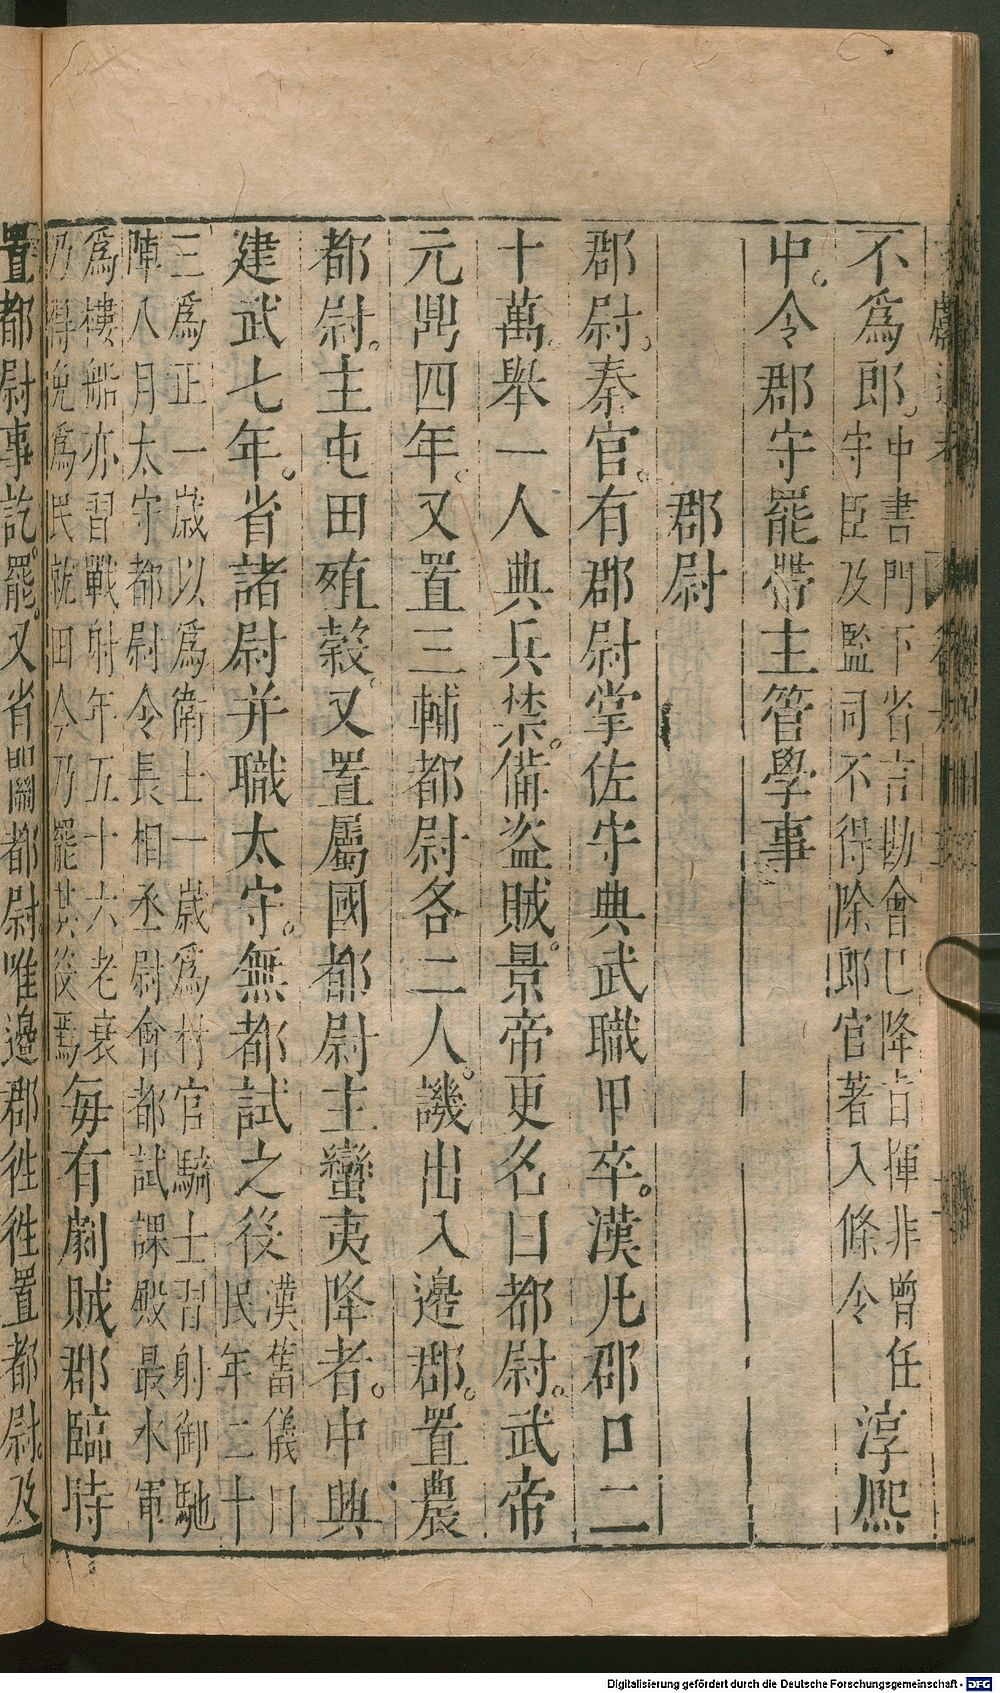 不爲郎中書門下省言勘會已降旨揮非曾任守臣及監司不得除郎官著入條令淳熙
中令郡守罷帶主管學事
郡尉
郡尉秦官有郡尉掌佐守典武職甲卒漢凡郡口二
十萬舉一人典兵禁備盜賊景帝更名曰都尉武帝
元鼎四年又置三輔都尉各二人譏出入邊郡置農
都尉主屯田殖穀又置屬國都尉主蠻夷降者中興
建武七年省諸尉并職太守無都試之後漢舊儀曰民年二十
三爲正一歲以爲衛士一歲爲材官騎士習射御馳
陣八月太守都尉令長相丞尉會都試課殿最水軍
爲樓船亦習戰射年五十六老衰
乃得免爲民就田今乃罷其後焉每有劇賊郡臨時
置都尉事訖罷又省關都尉唯邊郡往往置都尉及
Digitalisierung gefördert durch die Deutsche Forschungsgemeinschaft - DFG